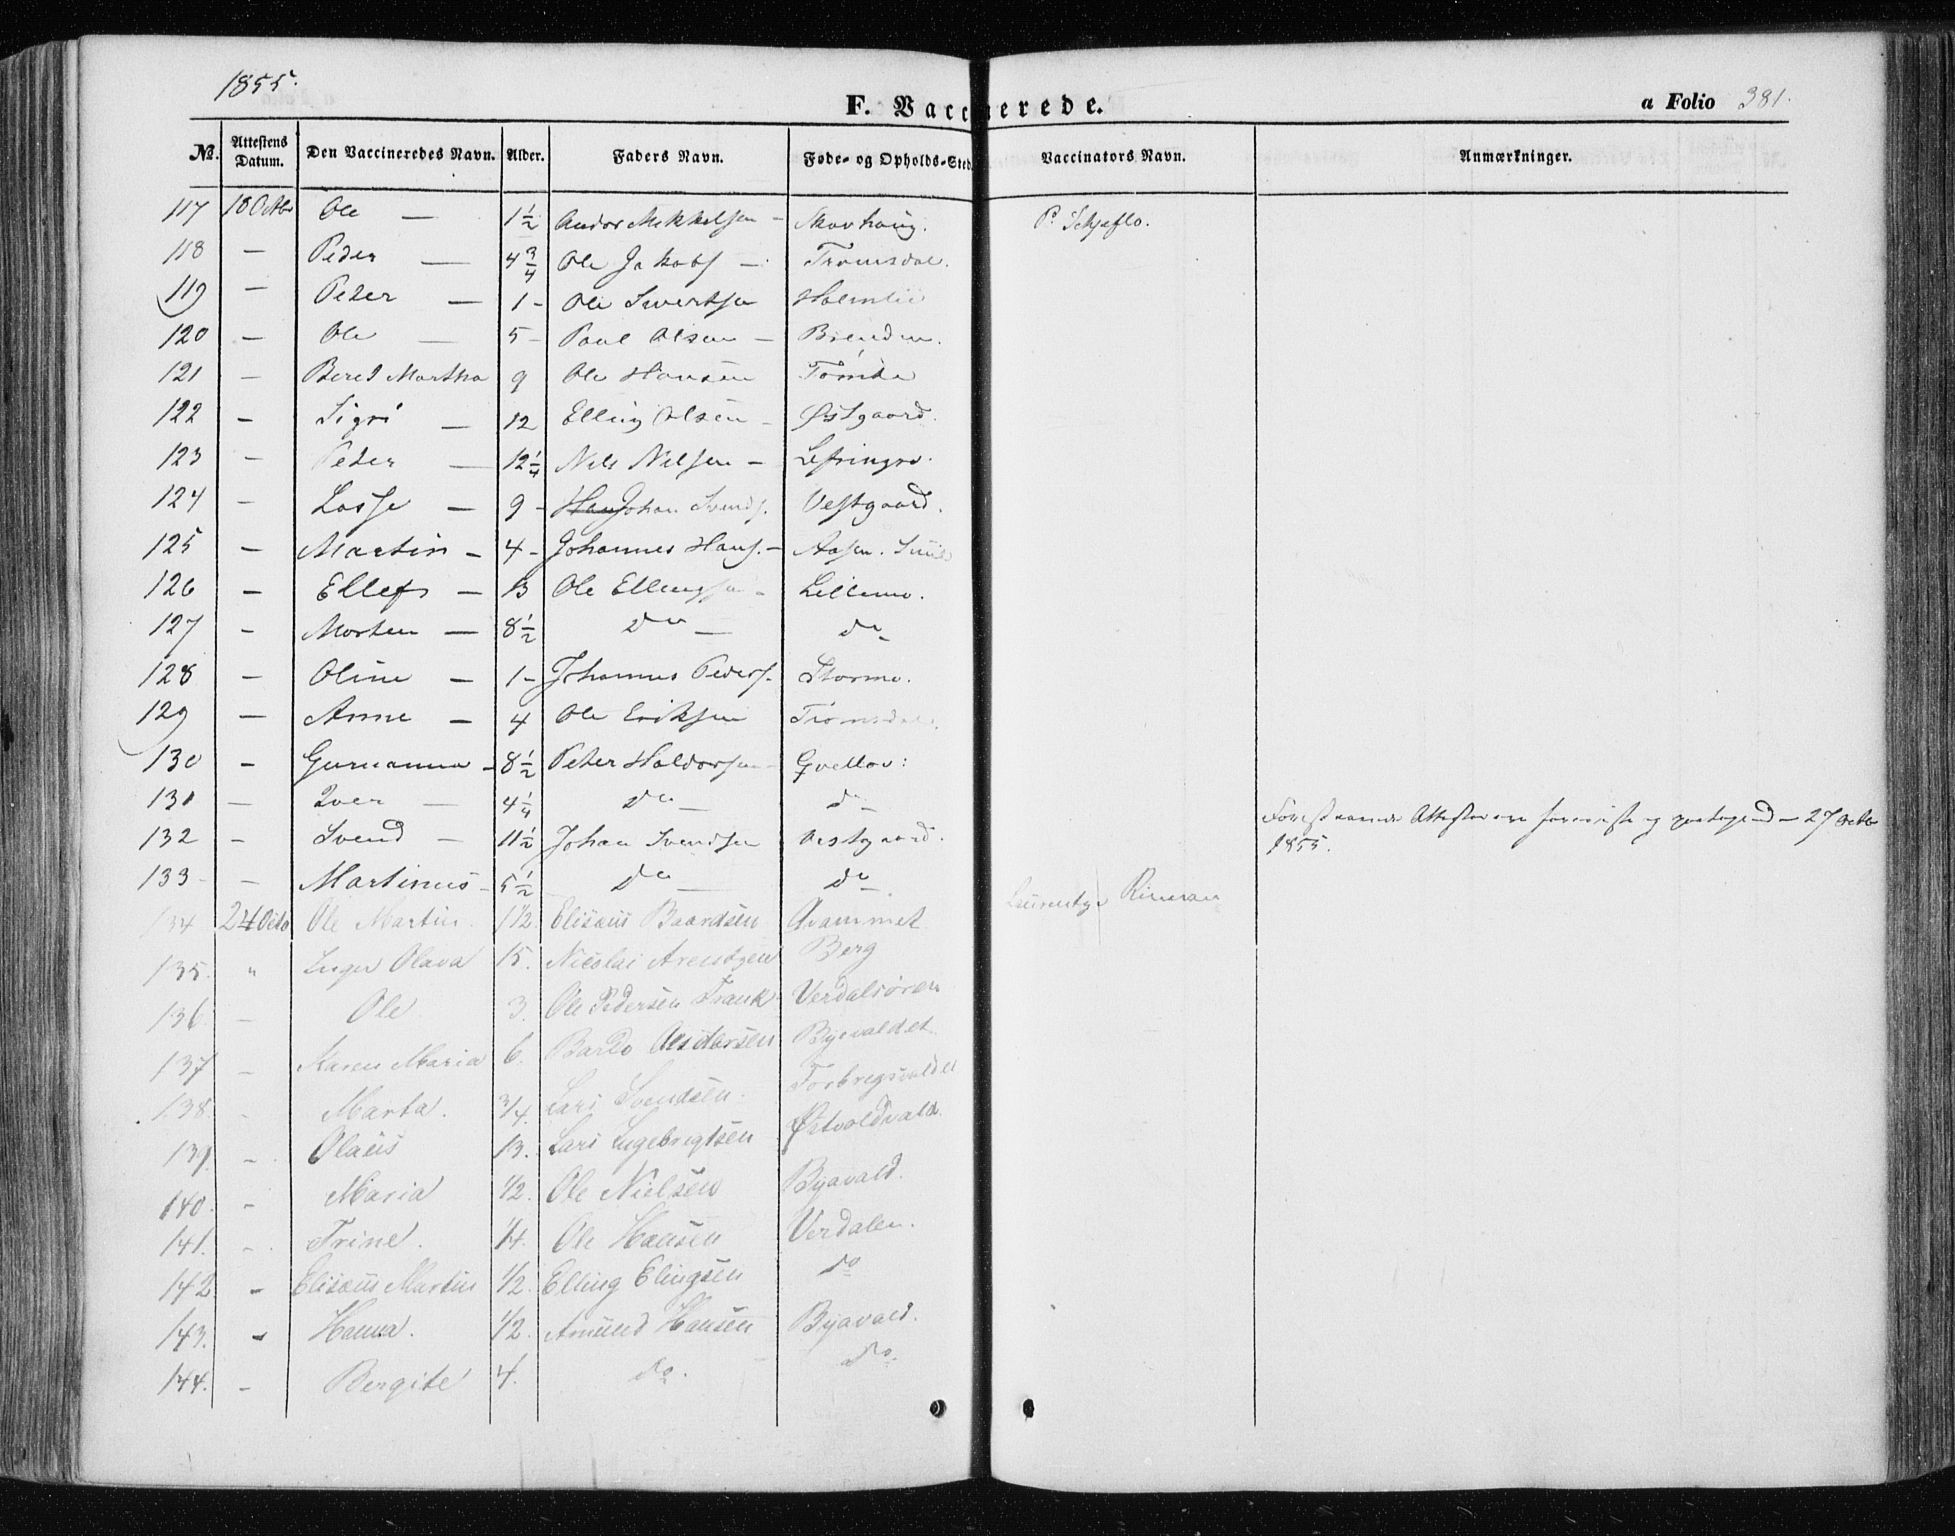 1855.
F. Vaccinerede.
a Folio 381.
No. Attestens Datum. Den Vaccineredes Navn. Alder. Faders Navn. Føde- og Opholds-Sted. Vaccinators Navn. Anmærkninger.
117 18 Octbr Ole — 1 1/2 Andor Mikkelsen — Skovhaug. P. Schjeflo.
118 — Peder — 4 3/4 Ole Jakobs — Tromsdal.
119 — Peter — 1 - Ole Sivertsen Holmlii
120 — Ole — 5 - Paul Olsen — Brenden.
121 — Beret Martha 9 Ole Hansen
122 — Sigri — 12 Elling Olsen - Østgaard.
123 — Peter — 12 1/4 Nils Nilsen —
124 — Lasse — 9 - Johan Svends. Vestgaard.
125 — Martin — 4 - Johannes Hans. — Aasen.
126 — Ellef — 13 Ole Ellingsen - Lillemo.
127 - Morten — 8 1/2 do — do
128 — Oline — 1 - Johannes Peders. Stormo.
129 — Anne — 4 Ole Eriksen Tromsdal.
130 - Gurianna - 8 1/2 Peter Haldorsen
131 — Iver — 4 1/4 do — do
132 - Svend — 11 1/2 Johan Svendsen Vestgaard.
Forestaaende Attester ere 27 Octbr
1855.
133 - — Martinus - 5 1/2 do — do
134 24 Octo Ole Martin. 1 1/2. Elisæus Baardsen Qvammet
135. " Inger Olava 15. Nicolai Arentzen Berg
136. — Ole. 3. Ole Pedersen Frank Verdalsøren
137 — Karen Maria 6. Byevaldet
138. - Marta. 3/4. Lars Svendsen. Forbregsvaldet
139. - Olaus 13. Lars Ingebrigtsen Østvoldvald.
140. - Maria 1/2. Ole Nielsen Byavald.
141. - Trine. 1/4. Ole Hansen Verdalen.
142 - Elisæus Martin 1/2. Elling Elingsen do
143. - Hanna. 1/2. Amund Hansen Byavald.
144. - Bergite 4. do. do.